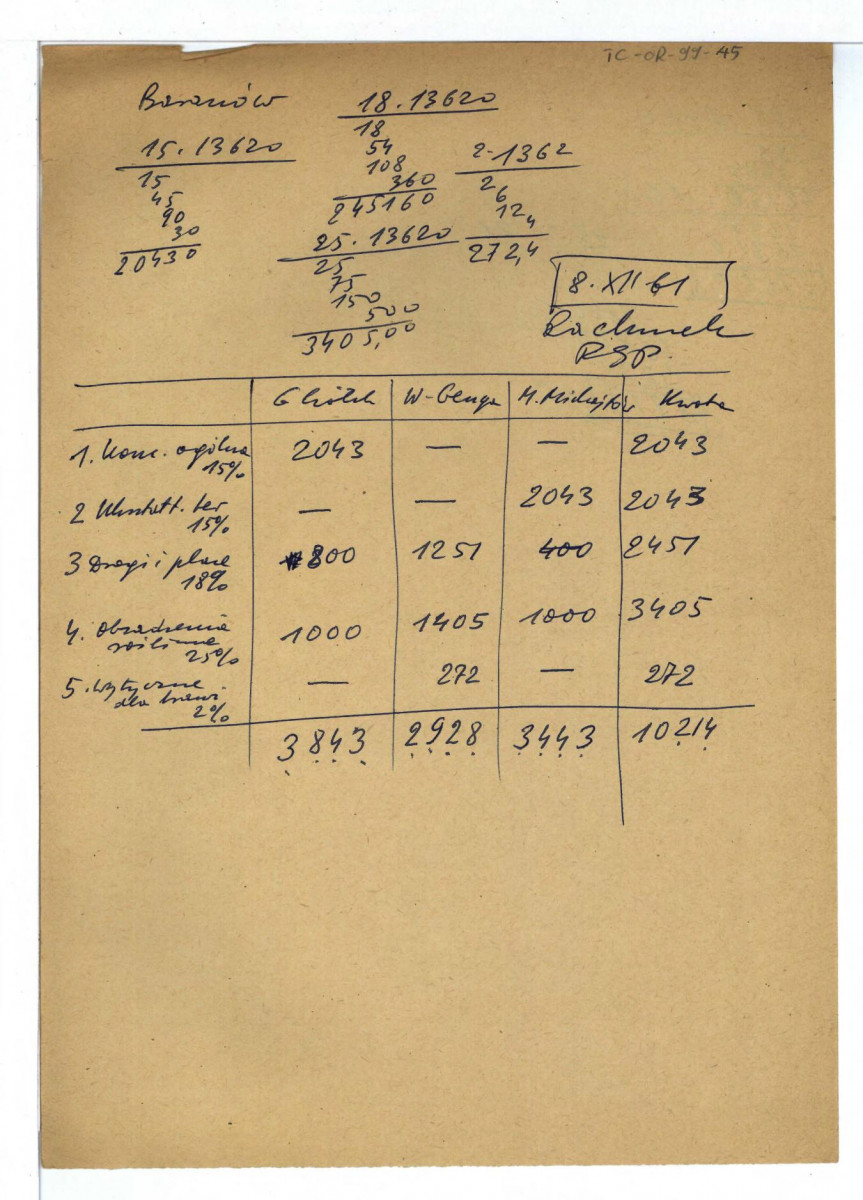 TC-OR-99-45
Baranów
15.13620
15
45
90
30
20430
18.13620
18
54
108
360
245160
25.13620
25
75
150
500
3405,00
2-1362
2
6
12,4
272,4
8.XII 61
Rachunek
RSP.
W-Genga M. Kwota
1. Konc. ogólna 2043 — — 2043
15%
2 Kształt. ter — — 2043 2043
15%
3 Drogi i place 800 1251 400 2451
18%
4. Obsadzenia 1000 1405 1000 3405
roślinne
25%
5. Wytyczne — 272 — 272
dla
2%
3843 2928 3443 10214